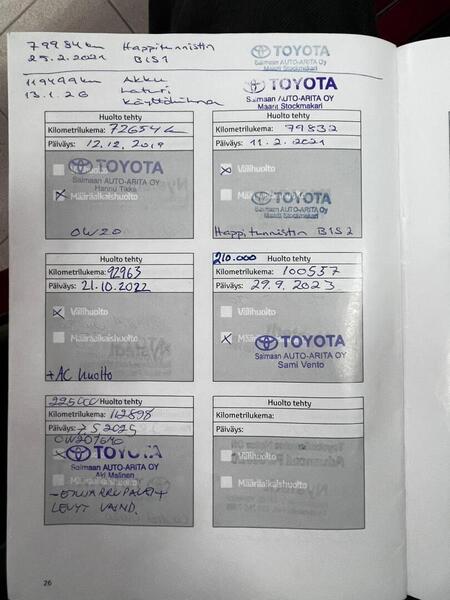 79984km Happitunnistin
25.2.2021 B1S1
TOYOTA
Saimaan AUTO-ARITA OY
Maarit Stockmakari
119499km Akku
13.1.26 Laturi
Käyttöhihna
TOYOTA
Saimaan AUTO-ARITA OY
Maarit Stockmakari
Huolto tehty
Kilometrilukema: 72654
Päiväys: 12.12.2019
TOYOTA
Saimaan AUTO-ARITA OY
Hannu Tikka
Määräaikaishuolto
0W20
Huolto tehty
Kilometrilukema: 79832
Päiväys: 11.2.2021
Välihuolto
TOYOTA
Saimaan AUTO-ARITA OY
Maarit Stockmakari
Happitunnistin B1S2
Huolto tehty
Kilometrilukema: 92963
Päiväys: 21.10.2022
Välihuolto
Määräaikaishuolto
+AC huolto
210.000 Huolto tehty
Kilometrilukema: 100537
Päiväys: 29.9.2023
Välihuolto
Määräaikaishuolto
TOYOTA
Saimaan AUTO-ARITA OY
Sami Vento
225000 Huolto tehty
Kilometrilukema: 112898
Päiväys: 7.5.2025
TOYOTA
Saimaan AUTO-ARITA OY
Aki Malinen
Määräaikaishuolto
LEVYT VAIHD.
Huolto tehty
Kilometrilukema:
Päiväys:
Välihuolto
Määräaikaishuolto
26